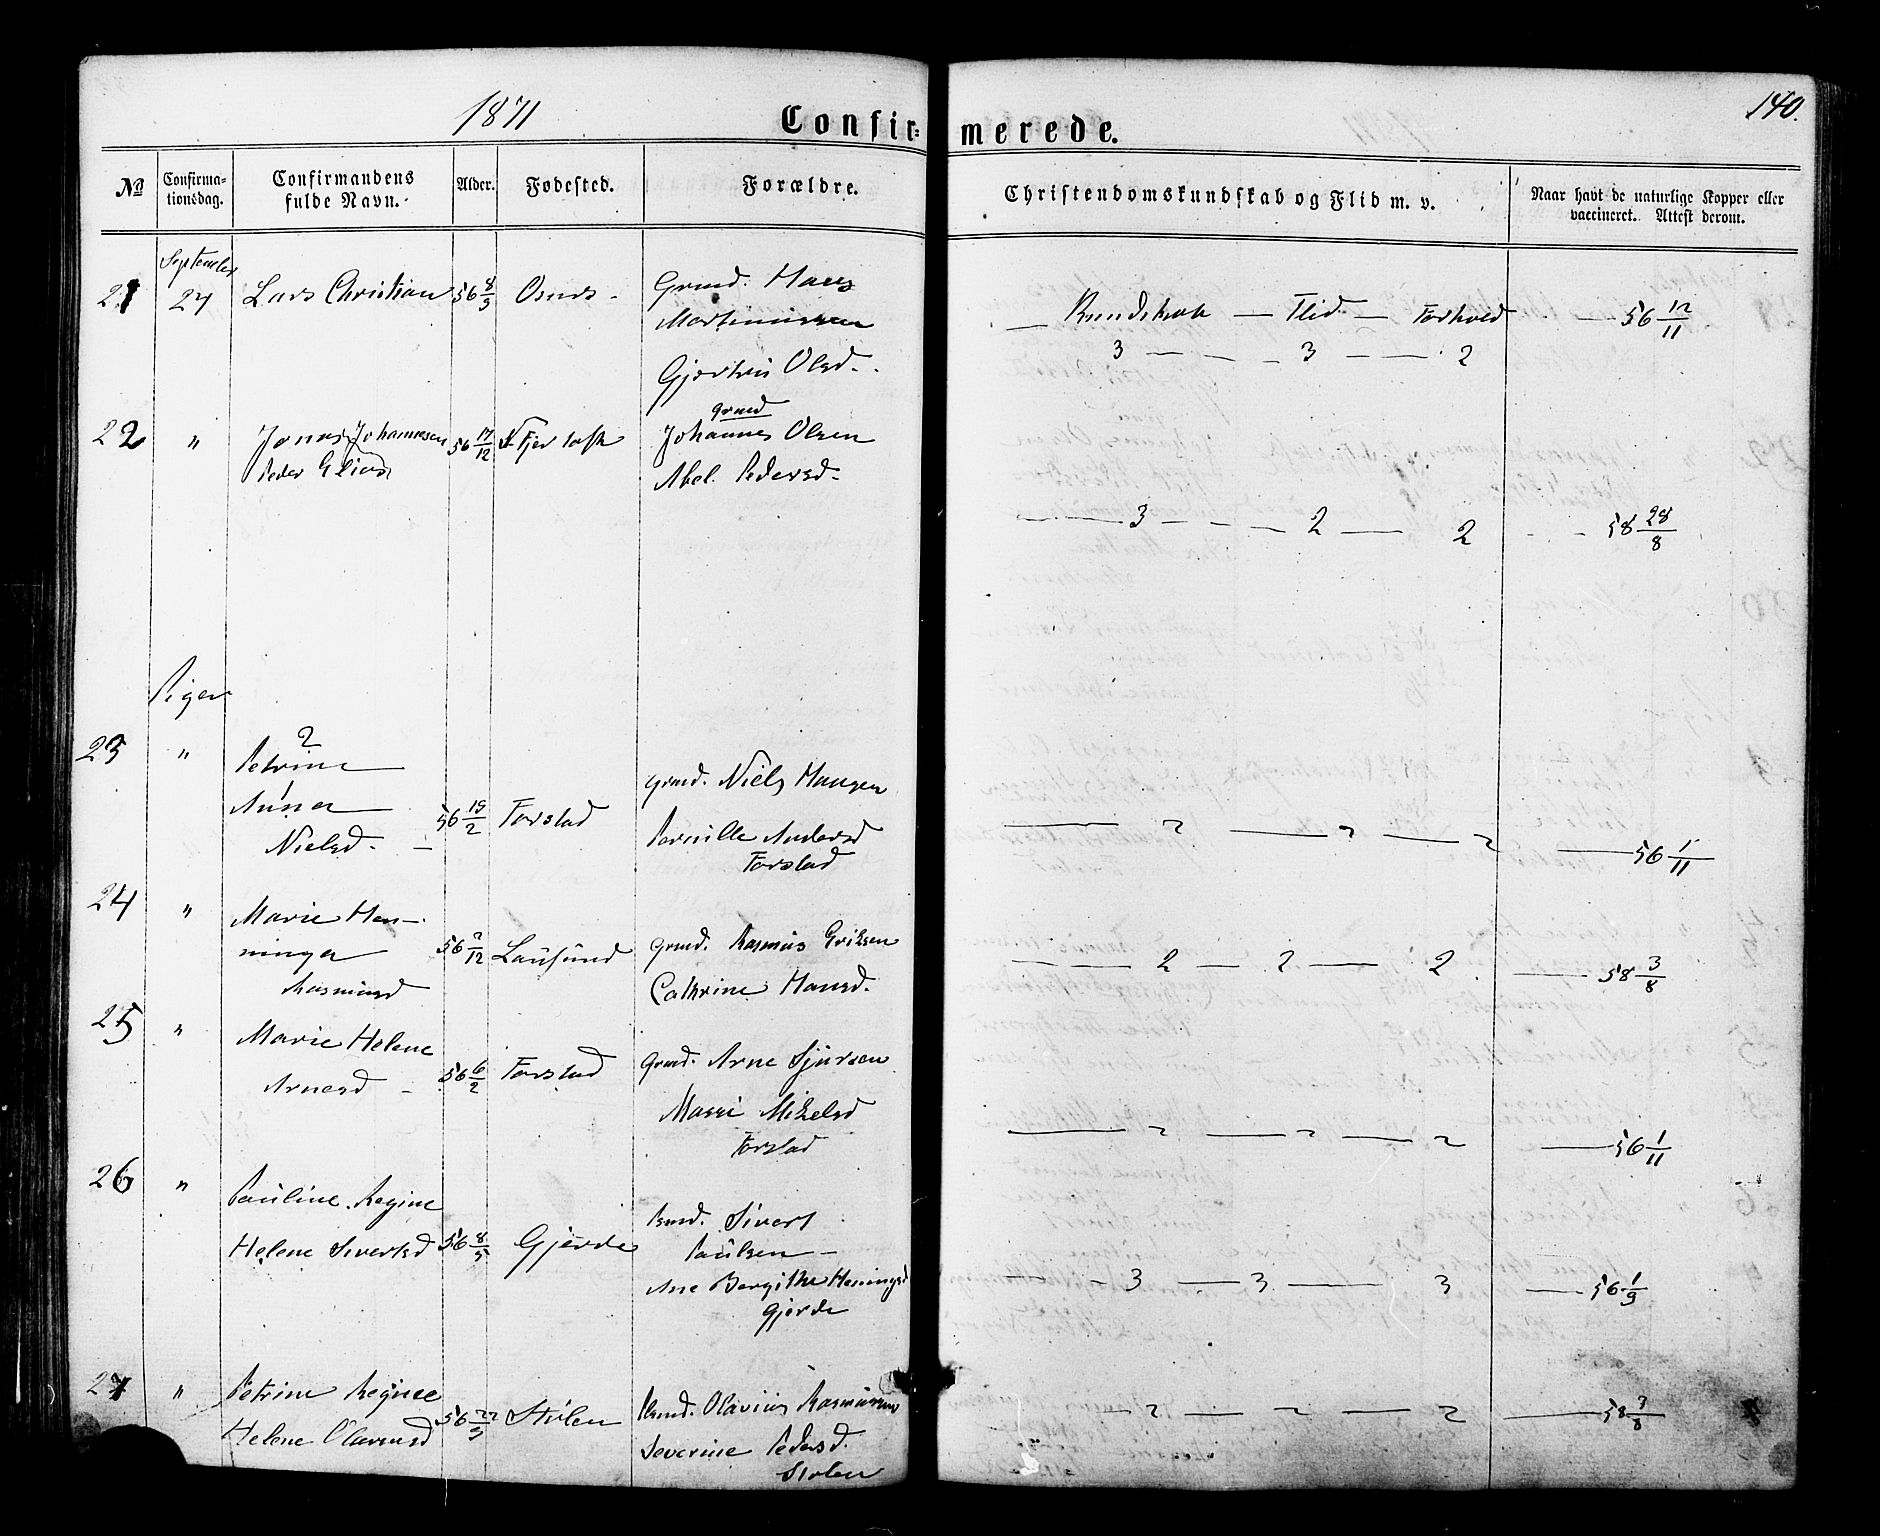 1871
Confirmerede.
140.
No Confirmationsdag. Confirmandens fulde Navn. Alder. Fødested. Forældre. Christendomskundskab og Flid m. v. Naar havt de naturlige Kopper eller vaccineret. Attest derom.
September
21 24 Lars Christian 56 8/9 Grmd. Hans
Martinussen
Olsd.
Kundskab — Flid — Forhold 56 12/11
3 — 3 — 2
22 " Jonas Johannesen 56 17/12 Fjertoft Grmd
Johannes Olsen
Peder Elias
Abel Pedersd.
3 — 2 — 2 58 28/8
Piger
23 " 2
Petrine
1
Anna
Nielsd. 56 19/2 Forstad Grmd. Niels Hansen
Pernille Andersd
Forstad
2 — 2 — 2 56 1/11
24 " Marie Hen-
ninga
Rasmusd 56 2/12 Grmd. Rasmus Eriksen
Cathrine Hansd.
2 — 2 — 2 58 3/8
25 " Marie Helene
Arnesd 56 6/2 Forstad Grmd. Arne Sjursen
Marri Mikelsd
Forstad
2 — 2 — 2 56 1/11
26 " Pauline Regine
Helene Sivertsd 56 8/5 Gjerde Sivert
Paulsen
Ane Bergithe Henningsd
Gjerde
3 — 3 — 3 56 1/9
27 " Petrine Reginee
Helene Olavusd 56 22/9 Stølen Olavius Rasmussen
Severine Pedersd.
Stølen
2 — 2 — 2 58 3/8